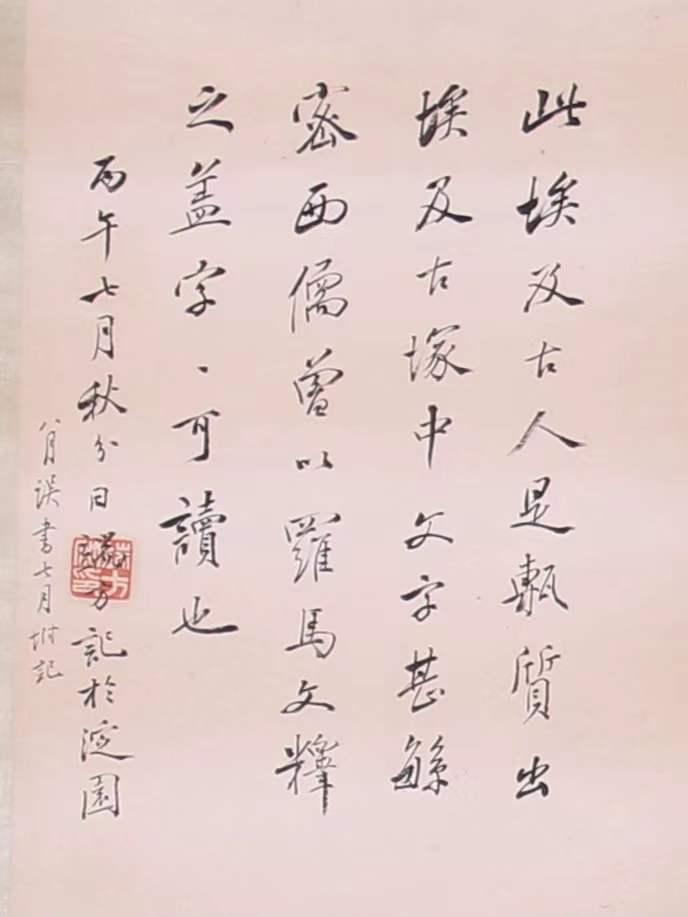 此埃及古人是甎質出
埃及古塚中文字甚緐
密西儒曾以羅馬文釋
之盖字、可讀也
丙午七月秋分日端方記於淀園
八月誤書七月坿記